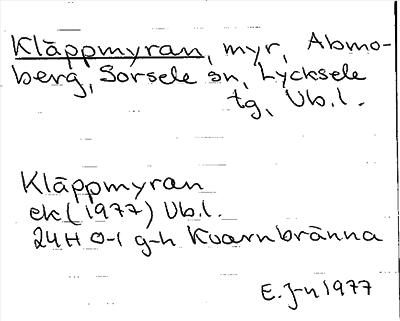 Kläppmyran, myr, Abmo-
berg, Sorsele sn, Lycksele
tg, Vb.l.
Kläppmyran
ek (1977) Vb.l.
24H 0-1 g-h Kvarnbränna
E. J-n 1977